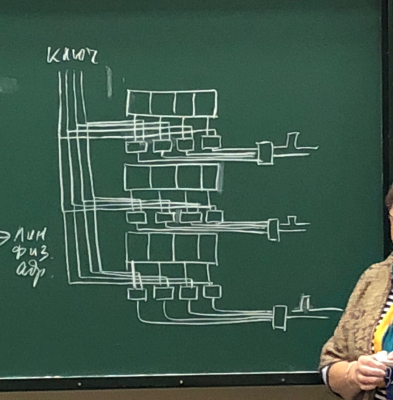 Ключ
Лин
физ.
адр.